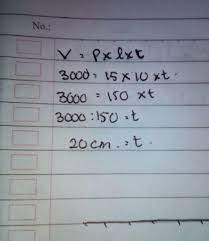 No.:
V = p x l x t
3000 = 15 x 10 x t.
3000 = 150 x t
3000 : 150 = t
20 cm. = t.